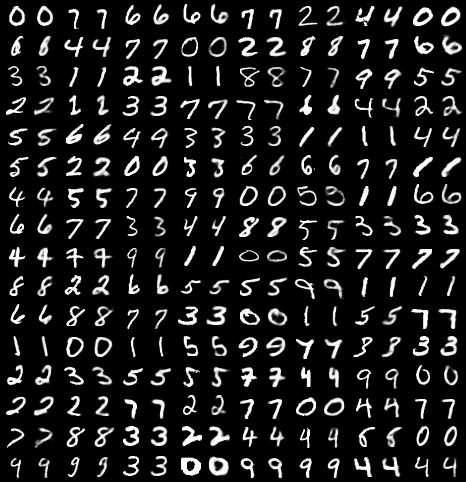 0 0 7 7 6 6 6 6 7 7 2 2 4 4 0 0
6 6 4 4 7 7 0 0 2 2 8 8 7 7 6 6
3 3 1 1 2 2 1 1 8 8 7 7 9 9 5 5
2 2 1 1 3 3 7 7 7 7 1 1 4 4 2 2
5 5 6 6 4 9 3 3 3 3 1 1 1 1 4 4
5 5 2 2 0 0 3 3 6 6 6 6 7 7 1 1
4 4 5 5 7 7 9 9 0 0 5 5 1 1 6 6
6 6 7 7 3 3 4 4 8 8 5 5 3 3 3 3
4 4 7 7 9 9 1 1 0 0 5 5 7 7 7 7
8 8 2 2 6 6 5 5 5 5 9 9 1 1 1 1
6 6 8 8 7 7 3 3 0 0 1 1 5 5 7 7
1 1 0 0 1 1 5 5 9 9 4 4 8 8 3 3
2 2 3 3 5 5 5 5 7 7 4 4 9 9 0 0
2 2 2 2 7 7 2 2 7 7 0 0 4 4 7 7
7 7 8 8 3 3 2 2 4 4 4 4 6 6 0 0
9 9 9 9 3 3 0 0 9 9 9 9 4 4 4 4